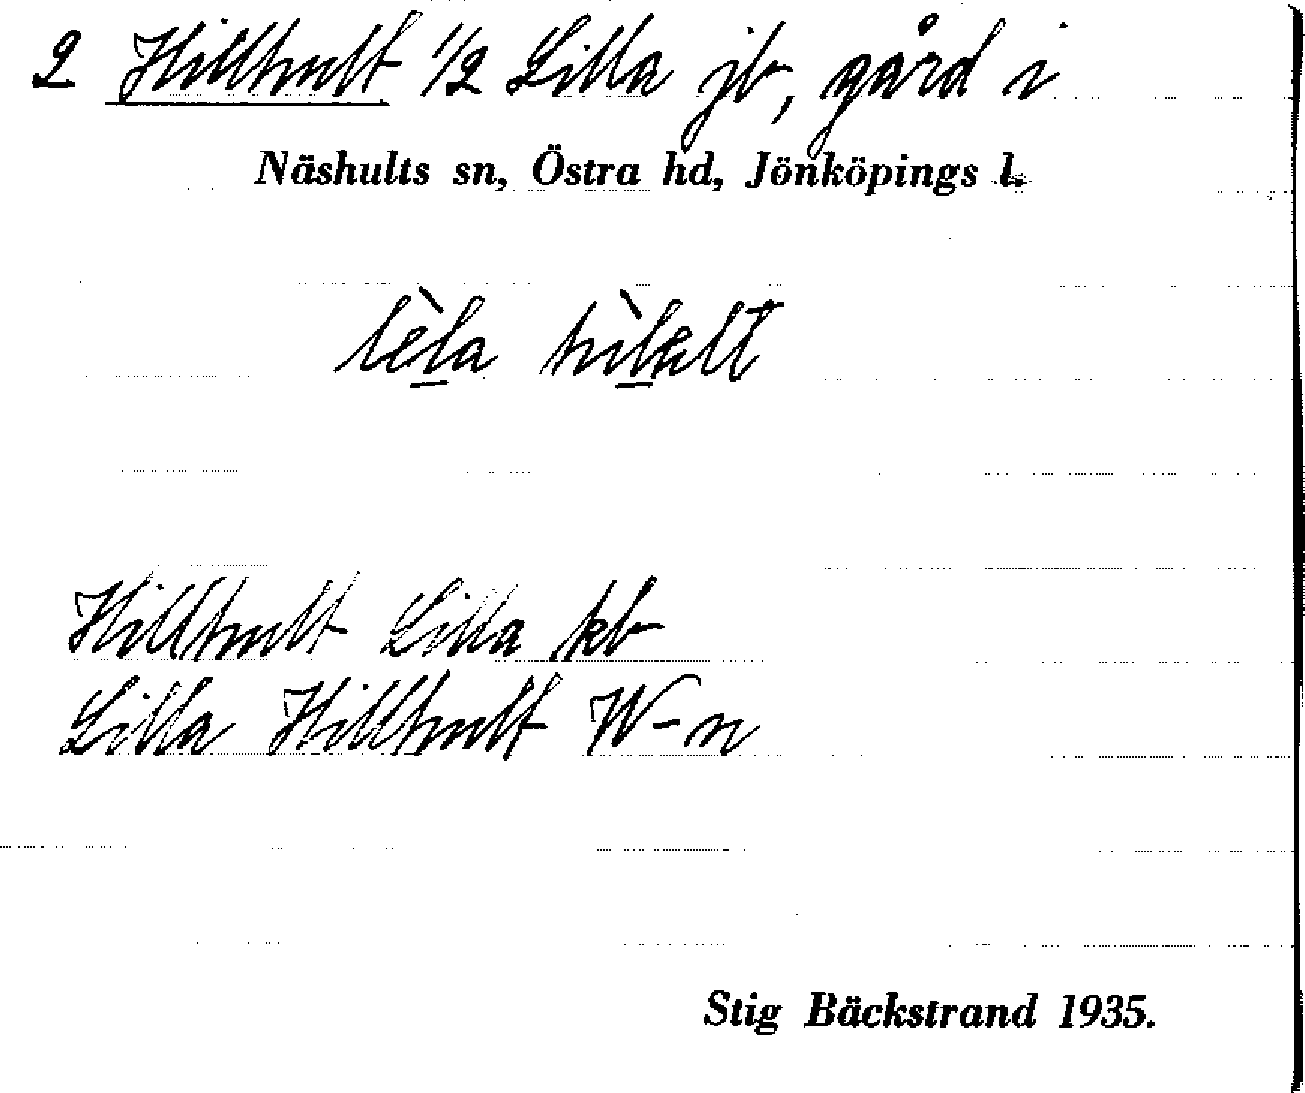 2 Hillhult 1/2 Lilla jb, gård i
Näshults sn, Östra hd, Jönköpings l.
lèla
Hillhult Lilla kb
Lilla Hillhult W-n
Stig Bäckstrand 1935.